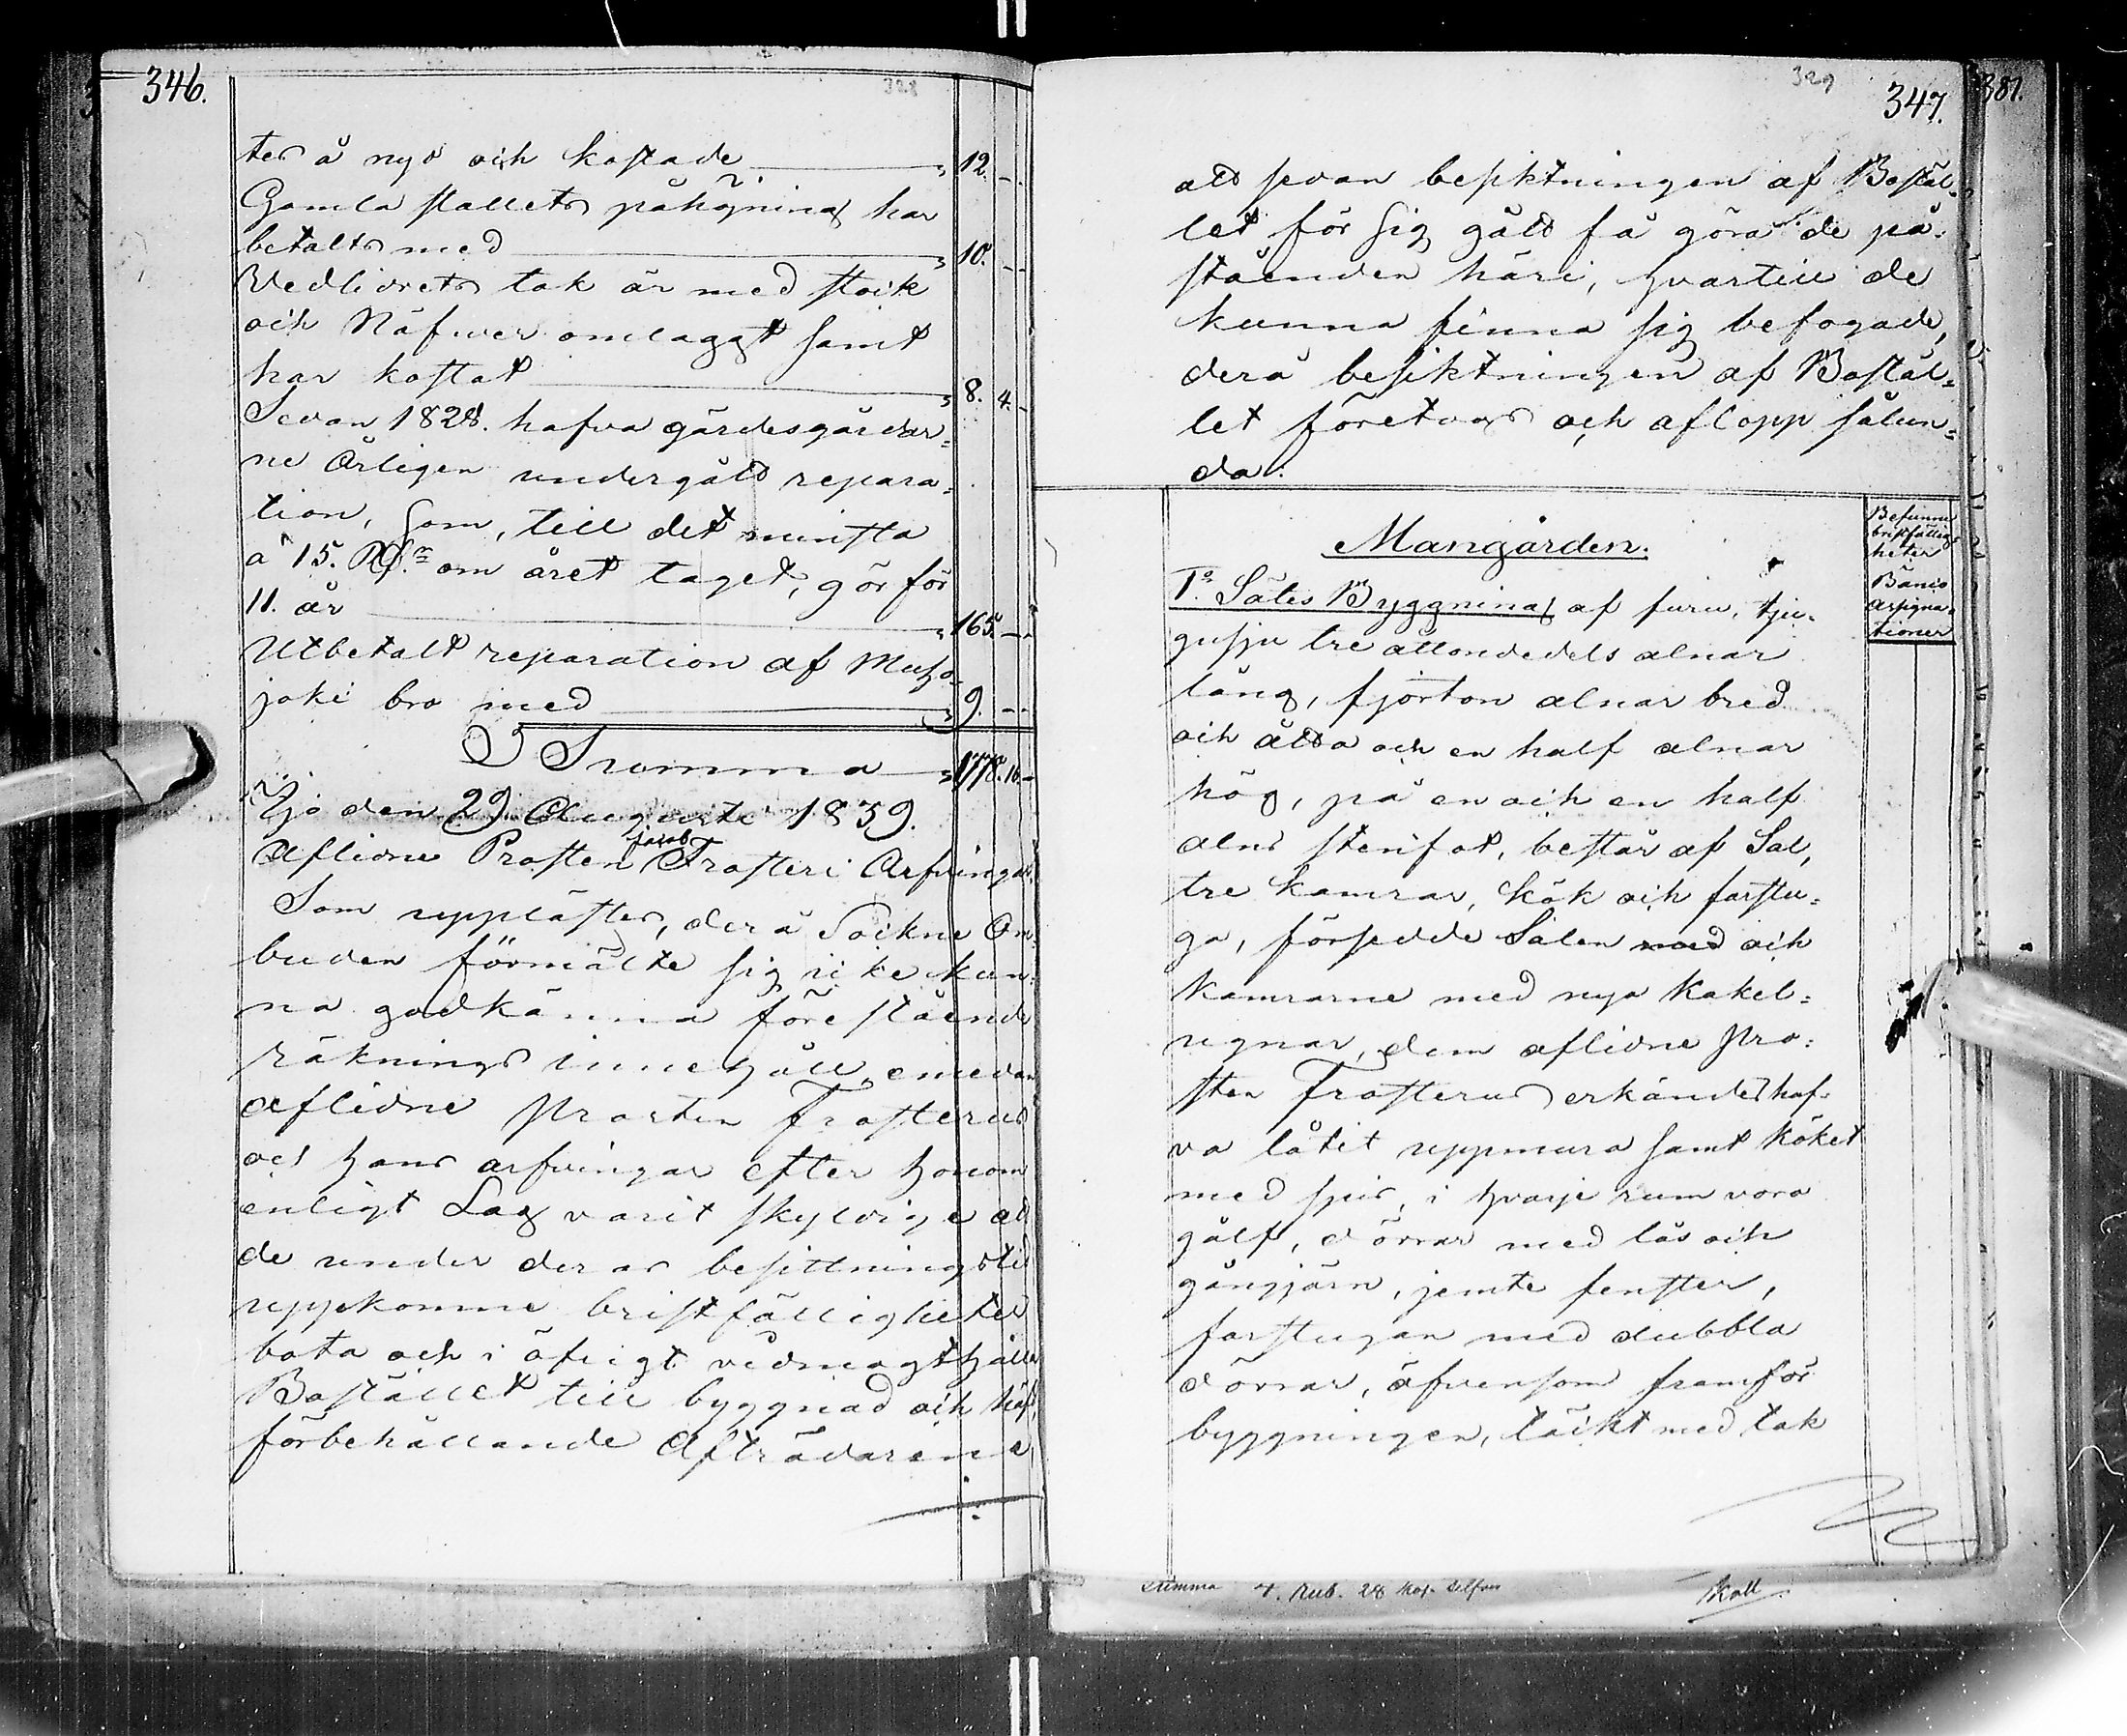 346.
328
ters å nyo och kostade " 12. -
Gamla stallets påhögning har
betalts med " 10. -
Vedlidrets tak är med stock
och Näfwer omlaggt samt
har kostat " 8. 4. -
Sedan 1828. hafva gärdesgårdar=
ne Årligen undergått repara=
tion, som, till det minsta
a 15. R om året taget, gör för
11. år " 165. -
Utbetalt reparation af Muho=
joki bro med " 9. -
Summa " 1778. 16 -
Ijo den 29 Augusti 1839.
Jacob
Aflidne Prosten Frosteri Arfvingar.
Som upplästes, derå Sockne Om=
buden förmälte sig icke kun=
na godkänna förestående
räknings innehåll, emedan
aflidne Prosten Frosterus
och hans arfvingar efter honom
enligt Lag varit skyldige att
de under deras besittningstid
uppkomne bristfälligheter
bota och i öfrigt vidmagthålla
Bostället till byggnad och häfd,
förbehållande Afträdarene,
329
347.
381.
att sedan besiktningen af Bostäl=
let för sig gått få göra de på=
ståenden häri, hvartill de
kunna finna sig befogade,
derå besiktningen af Bostäl=
let företogs och aflopp sålun=
da:
Mangården.
Befunne
bristfällig=
heter
Banco
assigna=
tioner
1:o Sätes Byggning af furu, tju=
gusju tre åttondedels alnar
lång, fjorton alnar bred
och åtta och en half alnar
hög, på en och en half
alns stenfot, består af Sal,
tre kamrar, kök och farstu=
ga, försedde Salen med och
kamrarne med nya kakel=
ugnar, dem aflidne Pro=
sten Frosterus erkändes haf=
va låtit uppmura samt köket
med spis, i hvarje rum voro
gålf, dörrar med lås och
gångjärn, jemte fenster,
farstugan med dubbla
dörrar, äfvensom framför
byggningen, täckt med tak
Summa 4. Rub. 28 kop. Silfver